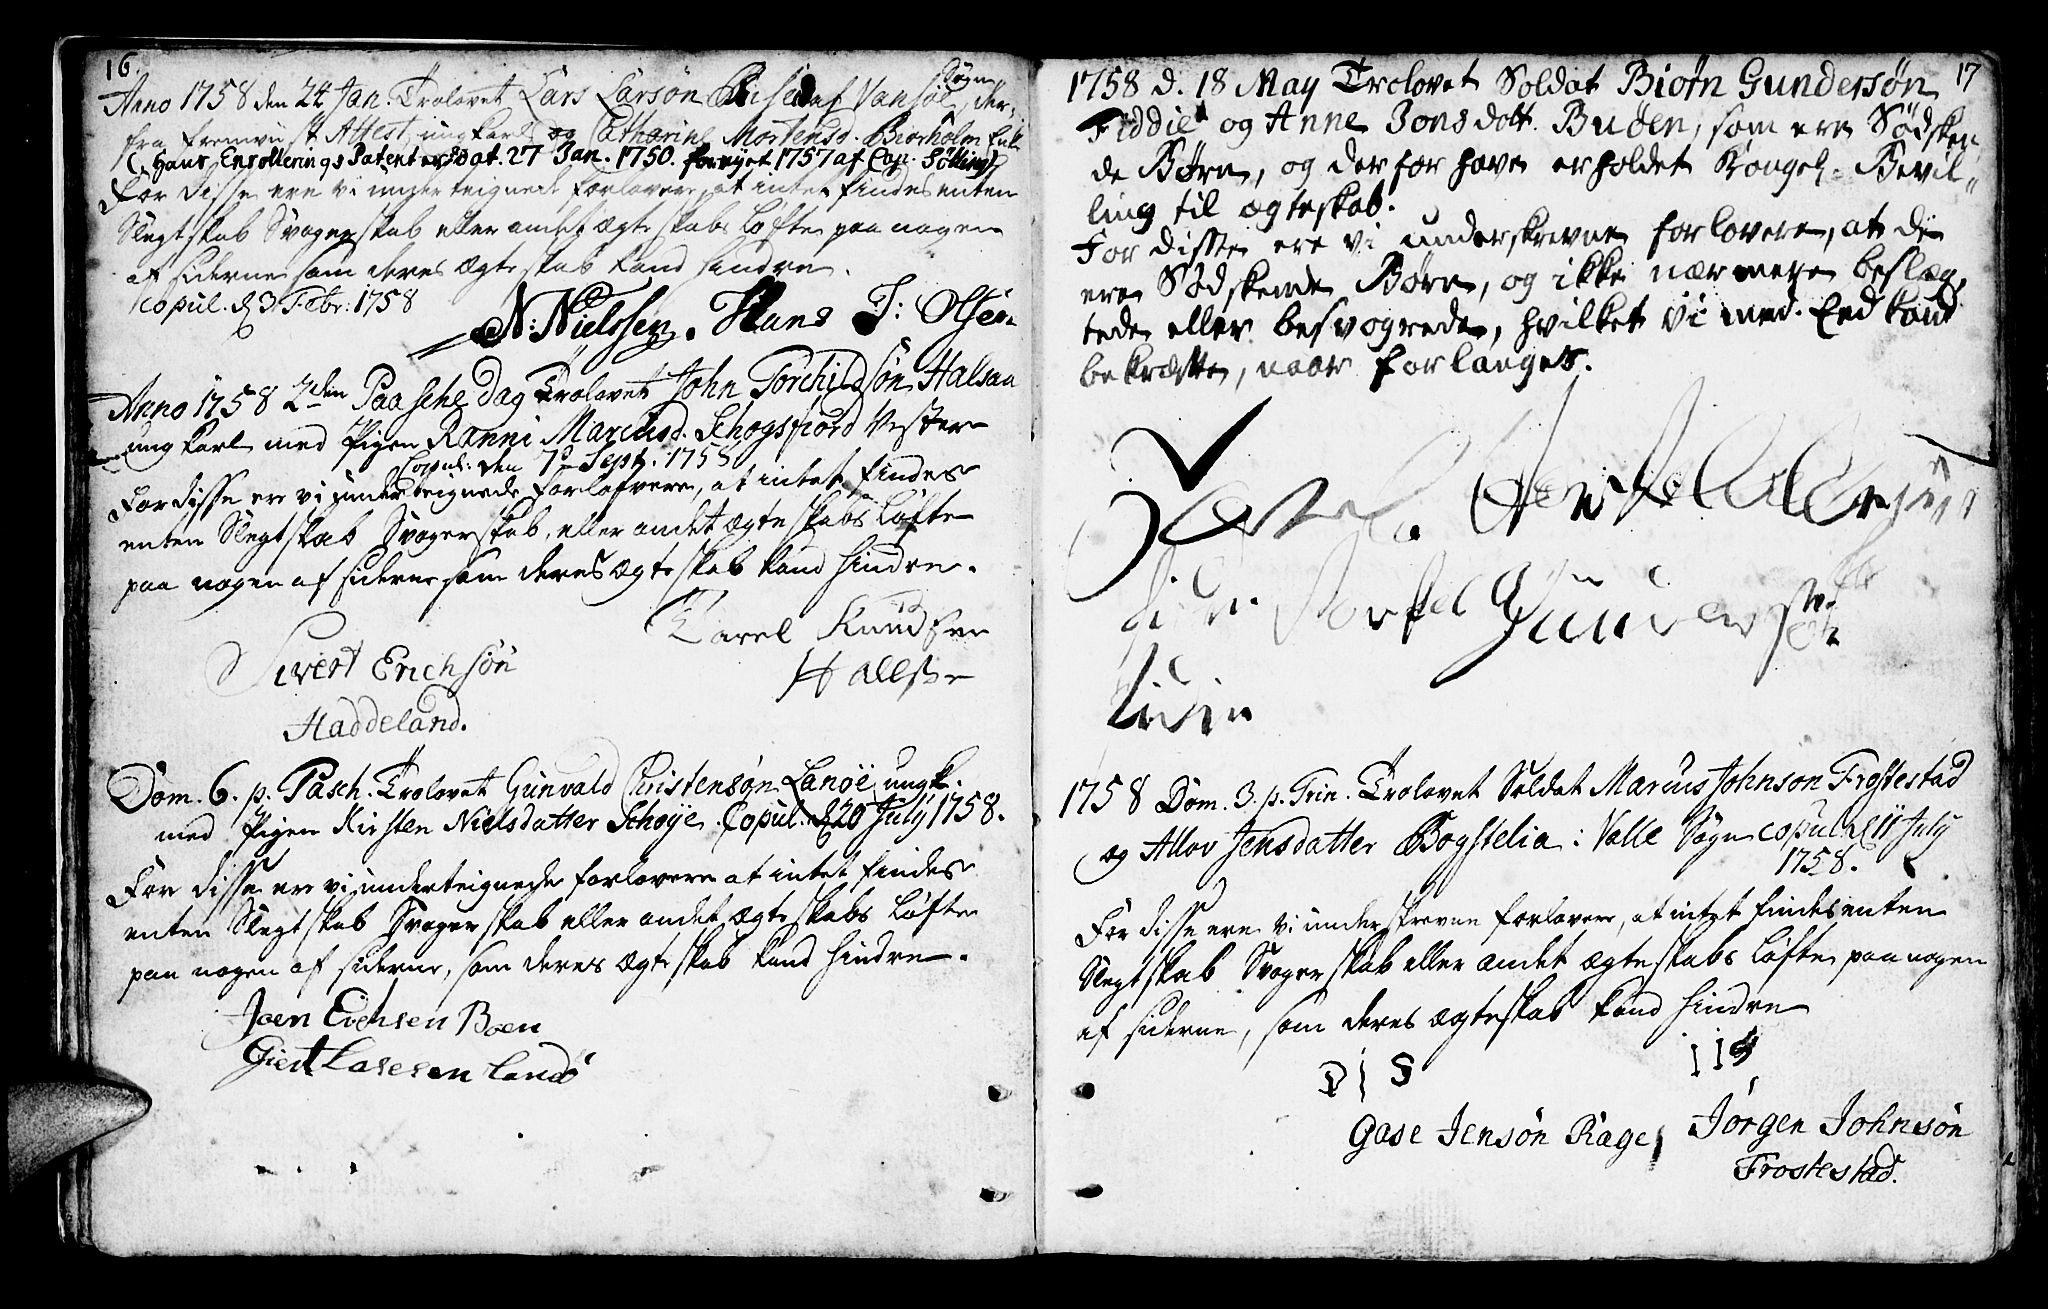 16.
Anno 1758 den 24 Jan. Trolovet Lars Larsøn af Vansøe Sogn, der,,
fra fremviist Attest, ungkarl og Catharine Mortensd. Biørholm Enk
(Hans Enrollerings Patent er dat. 27 Jan. 1750. fornyet 1757 af Cap. Sølling)
For disse ere vi underteignede forlovere, at intet findes enten
Slegtskab Svogerskab eller andet ægteskabs Løfte paa nogen
af siderne som deres Ægteskab kand hindre.
copul. d 3 Febr. 1758
N: Nielssen. Hans J: Olsen
Anno 1758 2den Paaschedag Trolovet John Torchildsøn Halsaa
ungkarl med Pigen Ranni Marcusd. Schogsfiord Vester
Copul: den 7de Sept. 1758
For disse ere vi underteignede forlofvere, at intet findes
enten Slegtskab Svogerskab, eller andet ægteskabs Løfte
paa nogen af siderne som deres Ægteskab kand hindre.
Karel Knudsen
Sivert Erichsøn
Haddeland.
Dom. 6. p. Pasch. Trolovet Gunvald Christensøn Lanøe ungk.
med Pigen Kirsten Nielsdatter Schøye. Copul. d 20 July 1758.
For disse ere vi underteignede forlovere at intet findes
enten Slegtskab Svogerskab eller andet ægteskabs Løfte
paa nogen af siderne, som deres Ægteskab kand hindre.
Joen Evensen Boen
Giert Lasesen Landø
17
1758 d. 18 May Trolovet Soldat Biørn Gundersøn
Fiddie og Anne Jonsdatt. Buøen, som ere Sødsken,,
de Børn, og derfor have erholdet Kongel. Bevil,,
ling til ægteskab.
For disse ere vi underskrevne forlovere, at de
ere Sødskende Børn, og ikke nærmere beslæg,,
tede eller besvogrede, hvilket vi med Eed kand
bekræfte, naar forlanges.
Gunderssøn
1758 Dom. 3. p. Trin. Trolovet Soldat Marcus Johnson Frostestad
og Allov Jensdatter Bogstelia i Valle Sogn copul d 11 July
1758.
For disse ere vi underskrevne forlovere, at intet findes enten
Slegtskab Svogerskab eller andet ægteskabs Løfte paa nogen
af siderne, som deres ægteskab kand hindre
Gase Jensøn Rage Jørgen Johnsøn
Frostestad.